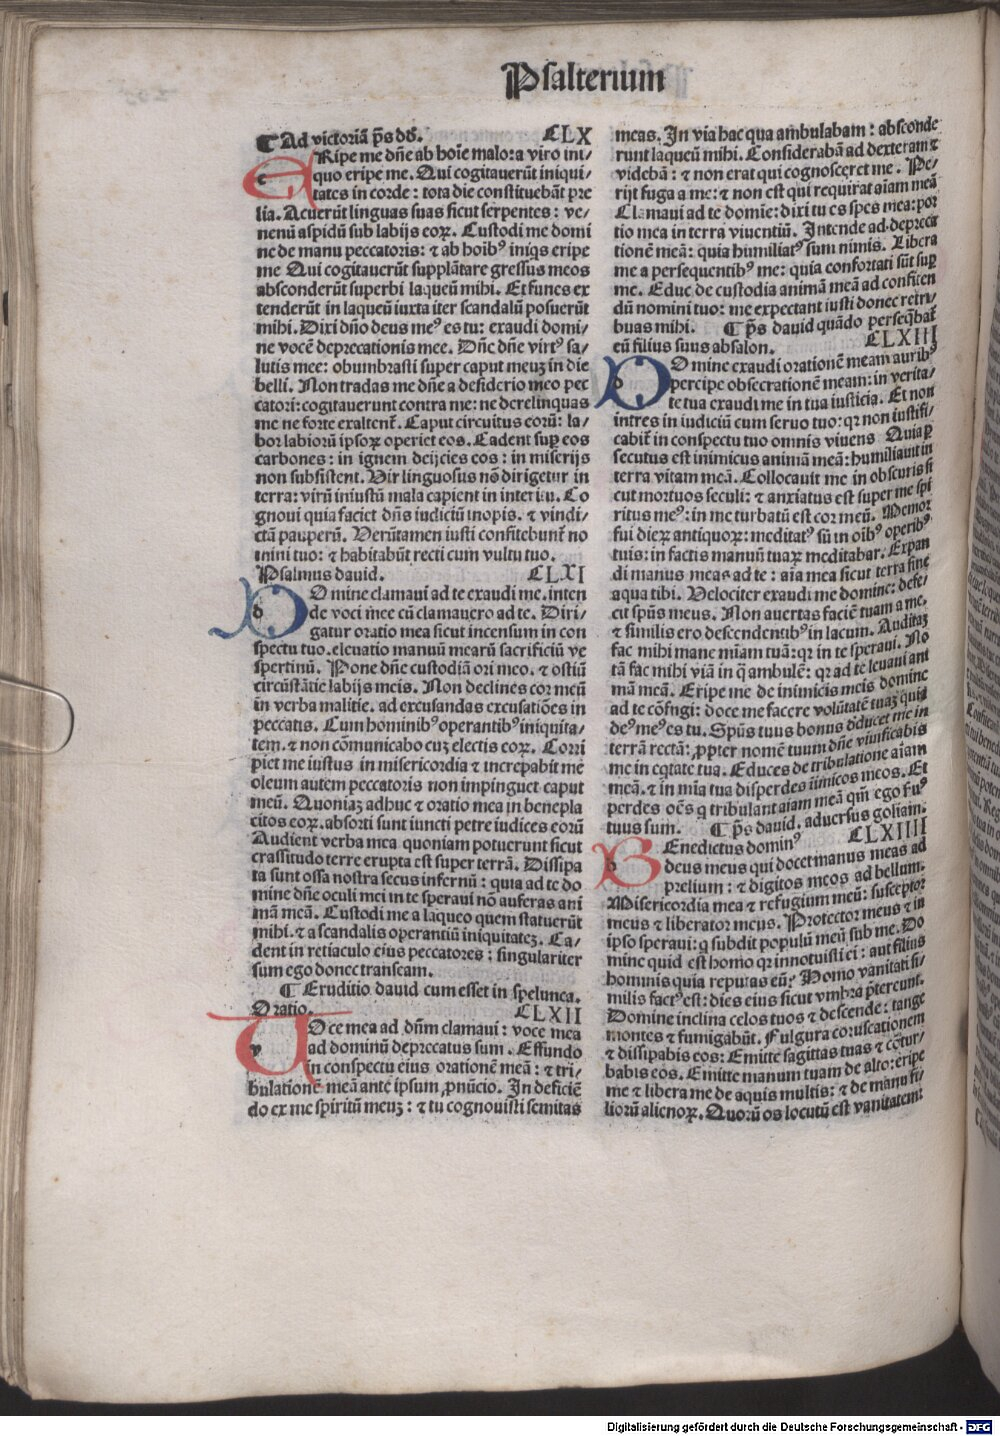 Psalterium
¶ Ad victoriā p̄s dd̄. CLX
ERipe me dn̄e ab hoīe malo: a viro ini/
quo eripe me. Qui cogitauerūt iniqui/
tates in corde: tota die constituebāt pre
lia. Acuerūt linguas suas sicut serpentes: ve/
nenū aspidū sub labijs eoꝝ. Custodi me domi
ne de manu peccatoris: ⁊ ab hoībꝰ iniqs eripe
me Qui cogitauerūt supplātare gressus meos
absconderūt superbi laqueū mihi. Et funes ex
tenderūt in laqueū iuxta iter scandalū posuerūt
mihi. Dixi dn̄o deus meꝰ es tu: exaudi domi/
ne vocē deprecationis mee. Dn̄e dn̄e virtꝰ sa/
lutis mee: obumbrasti super caput meuꝫ in die
belli. Non tradas me dn̄e a desiderio meo pec
catori: cogitauerunt contra me: ne derelinquas
me ne forte exaltent̄. Caput circuitus eorū: la/
bor labiorū ipsoꝝ operiet eos. Cadent suꝑ eos
carbones: in ignem deijcies eos: in miserijs
non subsistent. Vir linguosus nō dirigetur in
terra: virū iniustū mala capient in interitu. Co
gnoui quia faciet dn̄s iudiciū inopis. ⁊ vindi/
ctā pauperū. Verūtamen iusti confitebunt̄ no
mini tuo: ⁊ habitabūt recti cum vultu tuo.
Psalmus dauid. CLXI
DOmine clamaui ad te exaudi me. inten
de voci mee cū clamauero ad te. Diri/
gatur oratio mea sicut incensum in con
spectu tuo. eleuatio manuū mearū sacrificiū ve
spertinū. Pone dn̄e custodiā ori meo. ⁊ ostiū
circūstātie labijs meis. Non declines cor meū
in verba malitie. ad excusandas excusatiōes in
peccatis. Cum hominibꝰ operantibꝰ iniquita/
tem. ⁊ non cōmunicabo cuꝫ electis eoꝝ. Corri
piet me iustus in misericordia ⁊ increpabit me
oleum autem peccatoris non impinguet caput
meū. Quoniaꝫ adhuc ⁊ oratio mea in benepla
citos eoꝝ. absorti sunt iuncti petre iudices eorū
Audient verba mea quoniam potuerunt sicut
crassitudo terre erupta est super terrā. Dissipa
ta sunt ossa nostra secus infernū: quia ad te do
mine dn̄e oculi mei in te speraui nō auferas ani
mā meā. Custodi me a laqueo quem statuerūt
mihi. ⁊ a scandalis operantiū iniquitateꝫ. Ca/
dent in retiaculo eius peccatores: singulariter
sum ego donec transeam.
¶ Eruditio dauid cum esset in spelunca.
Oratio. CLXII
VOce mea ad dn̄m clamaui: voce mea
ad dominū deprecatus sum. Effundo
in conspectu eius orationē meā: ⁊ tri/
bulationē meā ante ipsum ꝓnūcio. In deficiē
do ex me spiritū meuꝫ: ⁊ tu cognouisti semitas
meas. In via hac qua ambulabam: absconde
runt laqueū mihi. Considerabā ad dexteram ⁊
videbā: ⁊ non erat qui cognosceret me. Pe/
rijt fuga a me: ⁊ non est qui requirat aīam meā
Clamaui ad te domīe: dixi tu es spes mea: por
tio mea in terra viuentiū. Intende ad depreca
tionē meā: quia humiliatꝰ sum nimis. Libera
me a persequentibꝰ me: quia confortati sūt suꝑ
me. Educ de custodia animā meā ad confiten
dū nomini tuo: me expectant iusti donec retri/
buas mihi. ¶ p̄s dauid quādo perseqbat̄
eū filius suus absalon. CLXIII
DOmine exaudi orationē meam auribꝰ
percipe obsecrationē meam: in verita/
te tua exaudi me in tua iusticia. Et non
intres in iudiciū cum seruo tuo: qꝛ non iustifi/
cabit̄ in conspectu tuo omnis viuens Quia ꝑ
secutus est inimicus animā meā: humiliauit in
terra vitam meā. Collocauit me in obscuris si
cut mortuos seculi: ⁊ anxiatus est super me spi
ritus meꝰ: in me turbatū est cor meū. Memor
fui dieꝝ antiquoꝝ: meditatꝰ sū in oībꝰ operibꝰ
tuis: in factis manuū tuaꝝ meditabar. Expan
di manus meas ad te: aīa mea sicut terra sine
aqua tibi. Velociter exaudi me domine: defe/
cit spūs meus. Non auertas faciē tuam a me.
⁊ similis ero descendentibꝰ in lacum. Auditaꝫ
fac mihi mane mīam tuā: qꝛ in te speraui. No
tā fac mihi viā in q̄ ambulē: qꝛ ad te leuaui ani
mā meā. Eripe me de inimicis meis domine
ad te cōfugi: doce me facere volūtatē tuaꝫ quia
deꝰ meꝰ es tu. Spūs tuus bonus dducet me in
terrā rectā: ꝓpter nomē tuum dn̄e viuificabis
me in eqtate tua. Educes de tribulatione aīam
meā. ⁊ in mīa tua disperdes inimicos meos. Et
perdes oēs q tribulant aīam meā qm̄ ego suꝰ
tuus sum. ¶ p̄s dauid. aduersus goliam.
CLXIIII
BEnedictus dominꝰ
deus meus qui docet manus meas ad
prelium: ⁊ digitos meos ad bellum.
Misericordia mea ⁊ refugium meū: susceptor
meus ⁊ liberator meus. Protector meus ⁊ in
ipso speraui: q subdit populū meū sub me. Do
mine quid est homo qꝛ innotuisti ei: aut filius
hominis quia reputas eū? Homo vanitati si/
milis factꝰ est: dies eius sicut vmbra p̄tereunt.
Domine inclina celos tuos ⁊ descende: tange
montes ⁊ fumigabūt. Fulgura coruscationem
⁊ dissipabis eos: Emitte sagittas tuas ⁊ cōtur/
babis eos. Emitte manum tuam de alto: eripe
me ⁊ libera me de aquis multis: ⁊ de manu fi/
liorū alienoꝝ. Quorū os locutū est vanitatem:
Digitalisierung gefördert durch die Deutsche Forschungsgemeinschaft - DFG